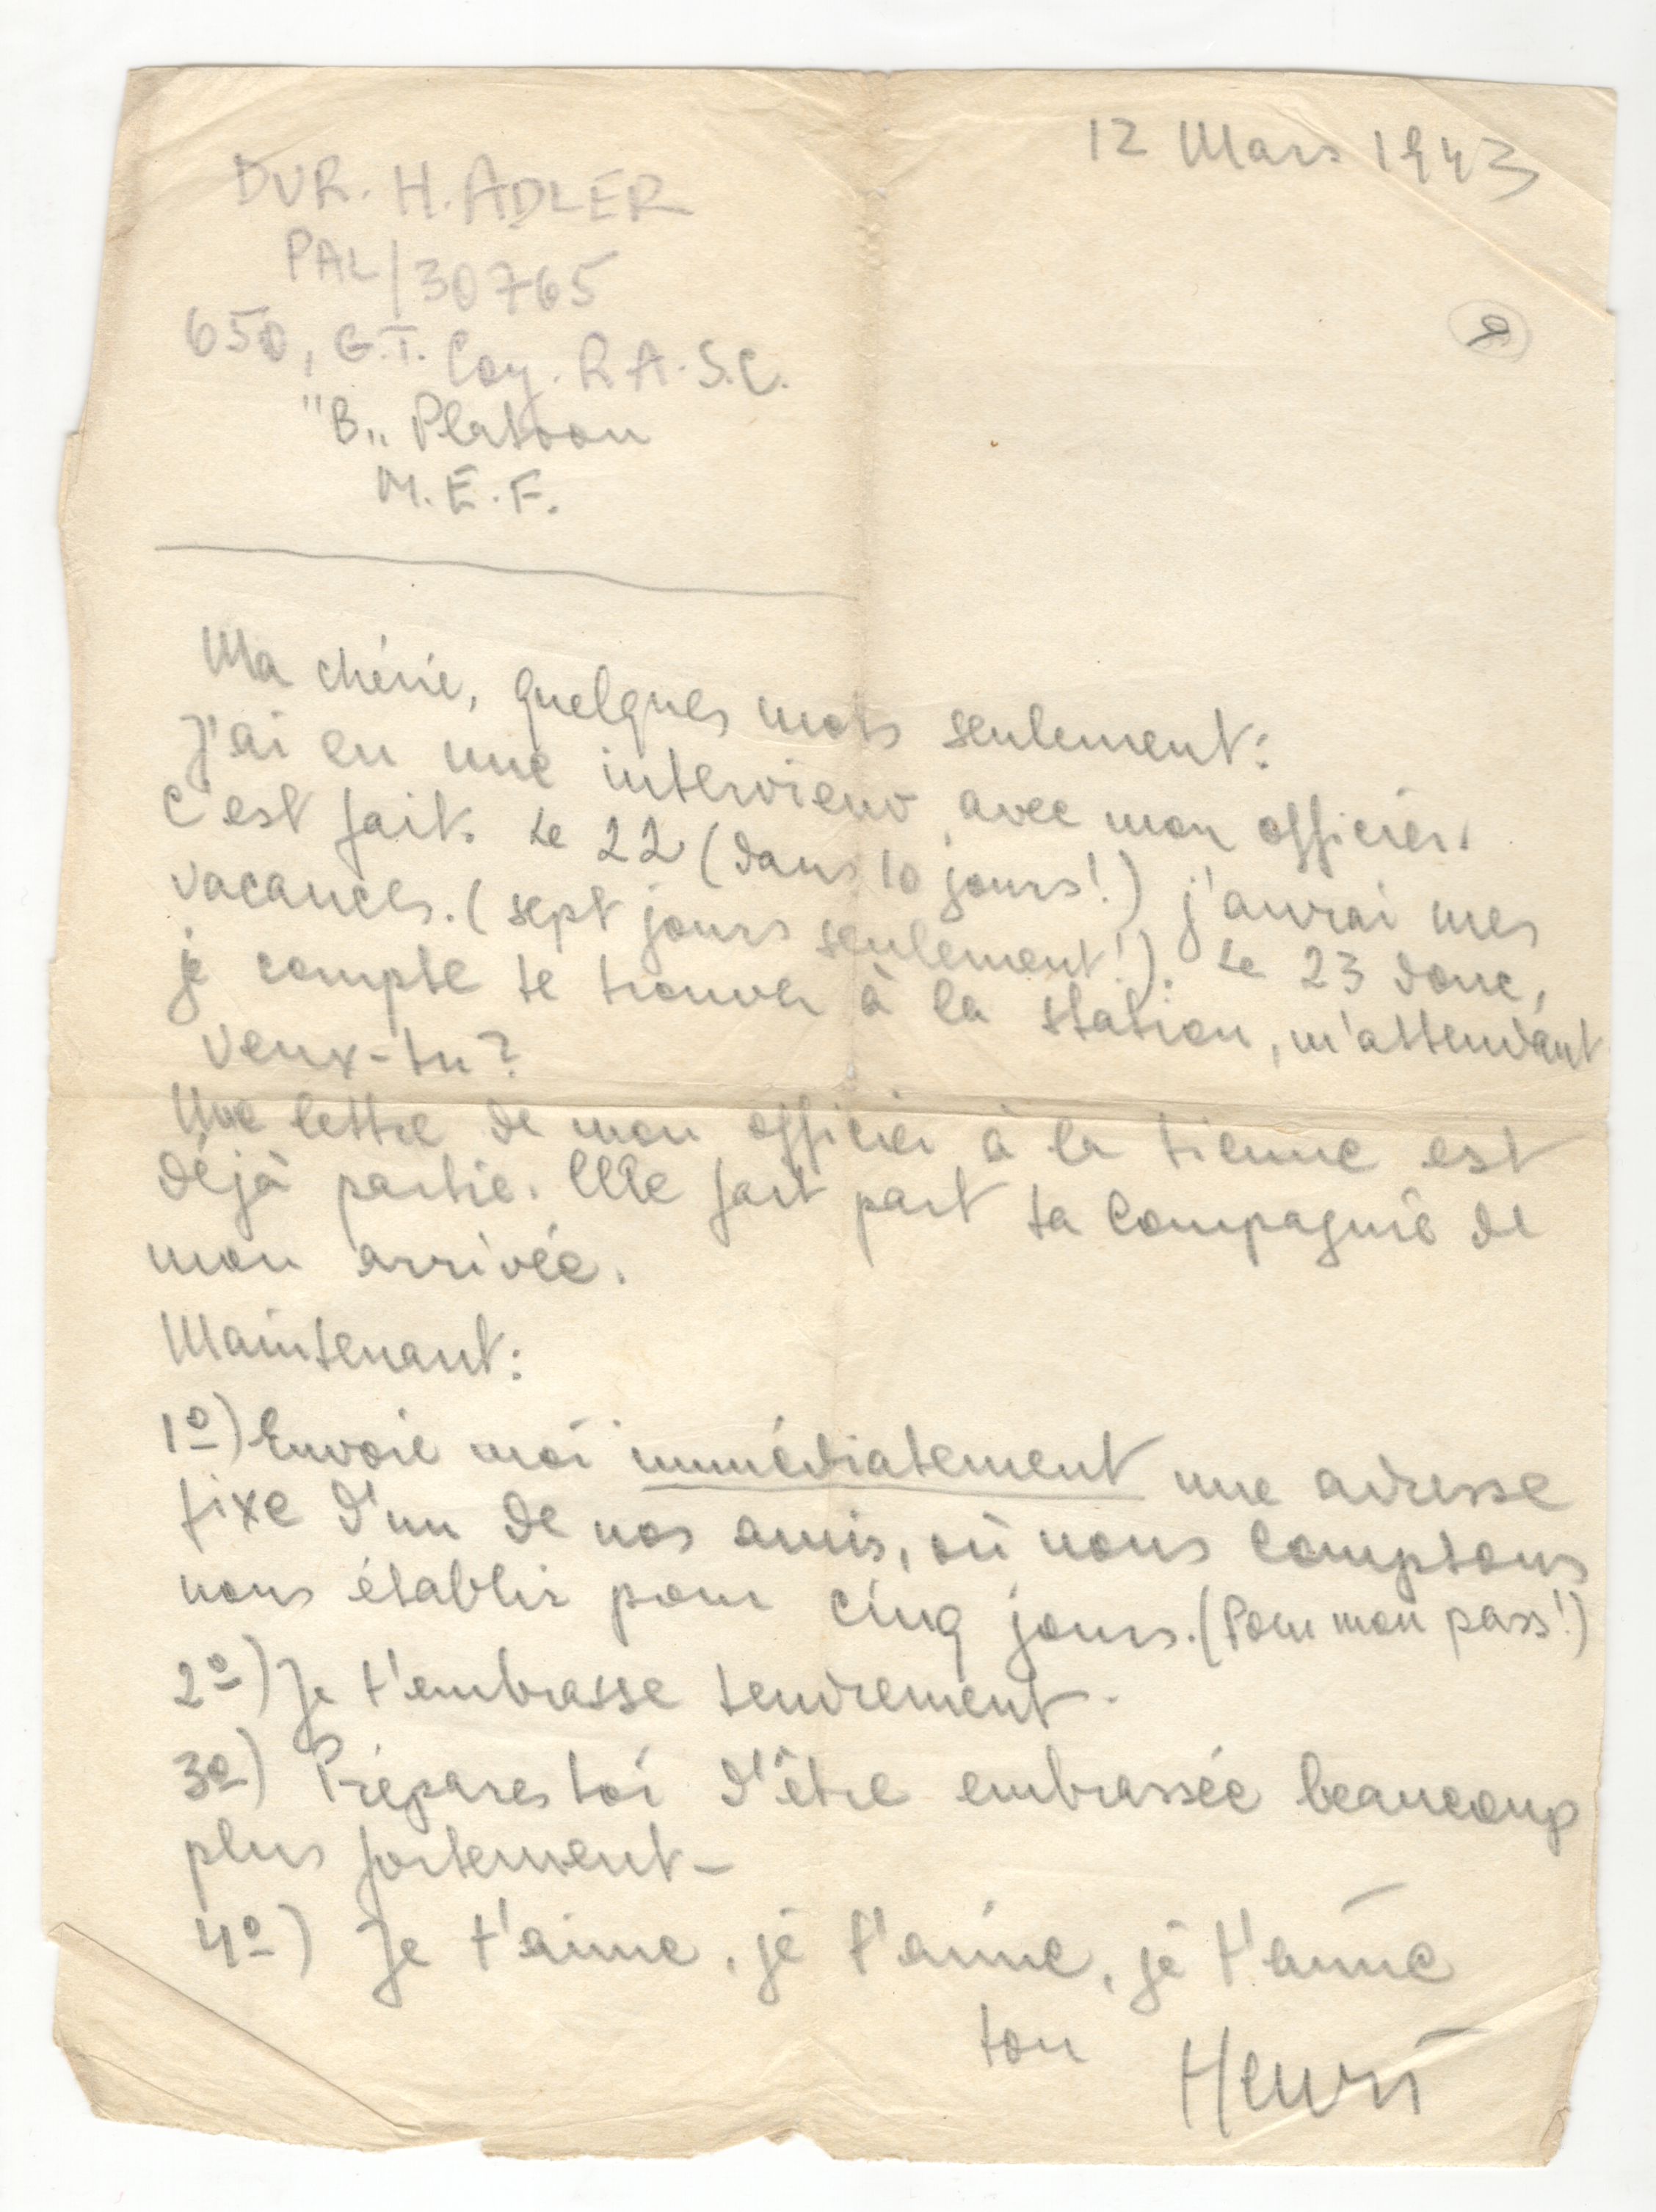 12 Mars 1943
DVR. H. ADLER
PAL/30765
650, G.T. Coy. R.A.S.C.
"B„ Platoon
M.E.F.
Ma chérie, quelques mots seulement:
J'ai eu une interview avec mon officier.
C'est fait. Le 22 (dans 10 jours!) j'aurai mes
vacances. (sept jours seulement!). Le 23 donc,
je compte te trouver à la station, m'attendant
veux-tu?
Une lettre de mon officier à la tienne est
déjà partie. Elle fait part ta Compagnie de
mon arrivée.
Maintenant:
1º) Envoie moi immédiatement une adresse
fixe d'un de nos amis, où nous comptons
nous établir pour cinq jours. (Pour mon pass!)
2º) Je t'embrasse tendrement.
3º) Prépares toi d'être embrassée beaucoup
plus fortement -
4º) Je t'aime, je t'aime, je t'aime
ton Henri